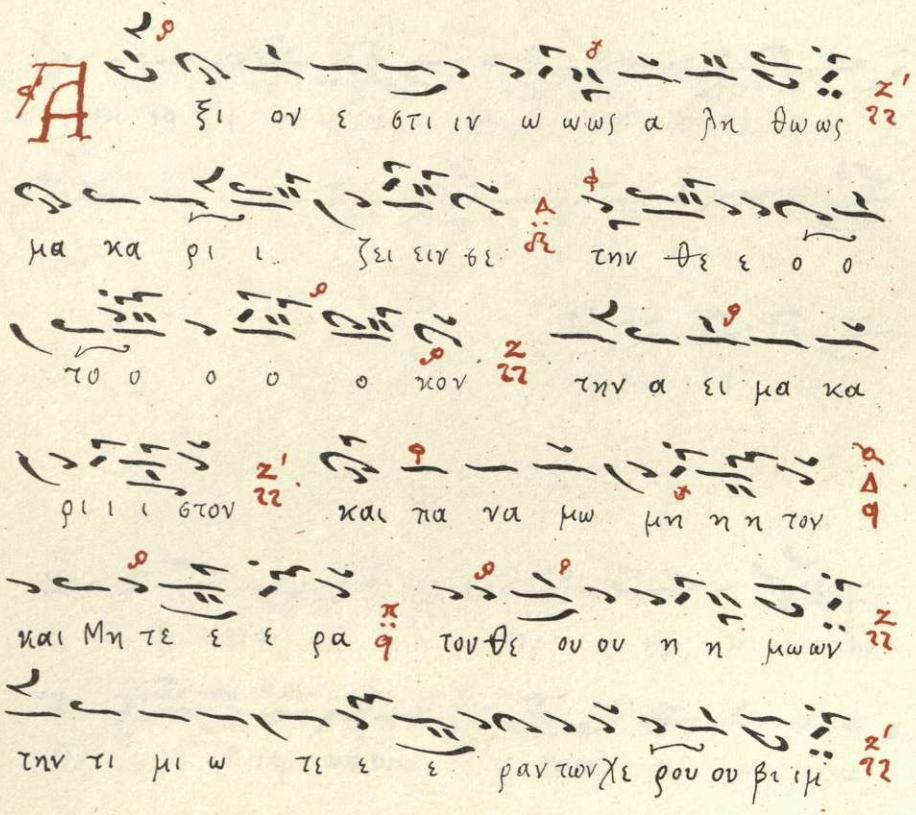 Α ξι ον ε στι ιν ω ωως α λη θωως
μα κα ρι ι ζει ειν σε την θε ε ο ο
το ο ο ο ο κον την α ει μα κα
ρι ι ι στον και πα να μω μη η η τον
και Μη τε ε ε ρα του θε ου ου η η μωων
την τι μι ω τε ε ε ραν των χε ρου ου βι ιμ